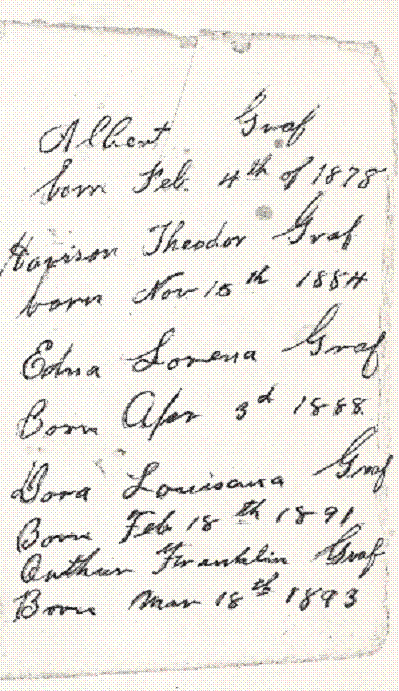 Albert Graf
born Feb. 4th of 1878
Harison Theodor Graf
born Nov 15th 1884
Edna Lorena Graf
Born Apr 3d 1888
Dora Louisana Graf
Born Feb 18th 1891
Arthur Franklin Graf
Born Mar 18th 1893